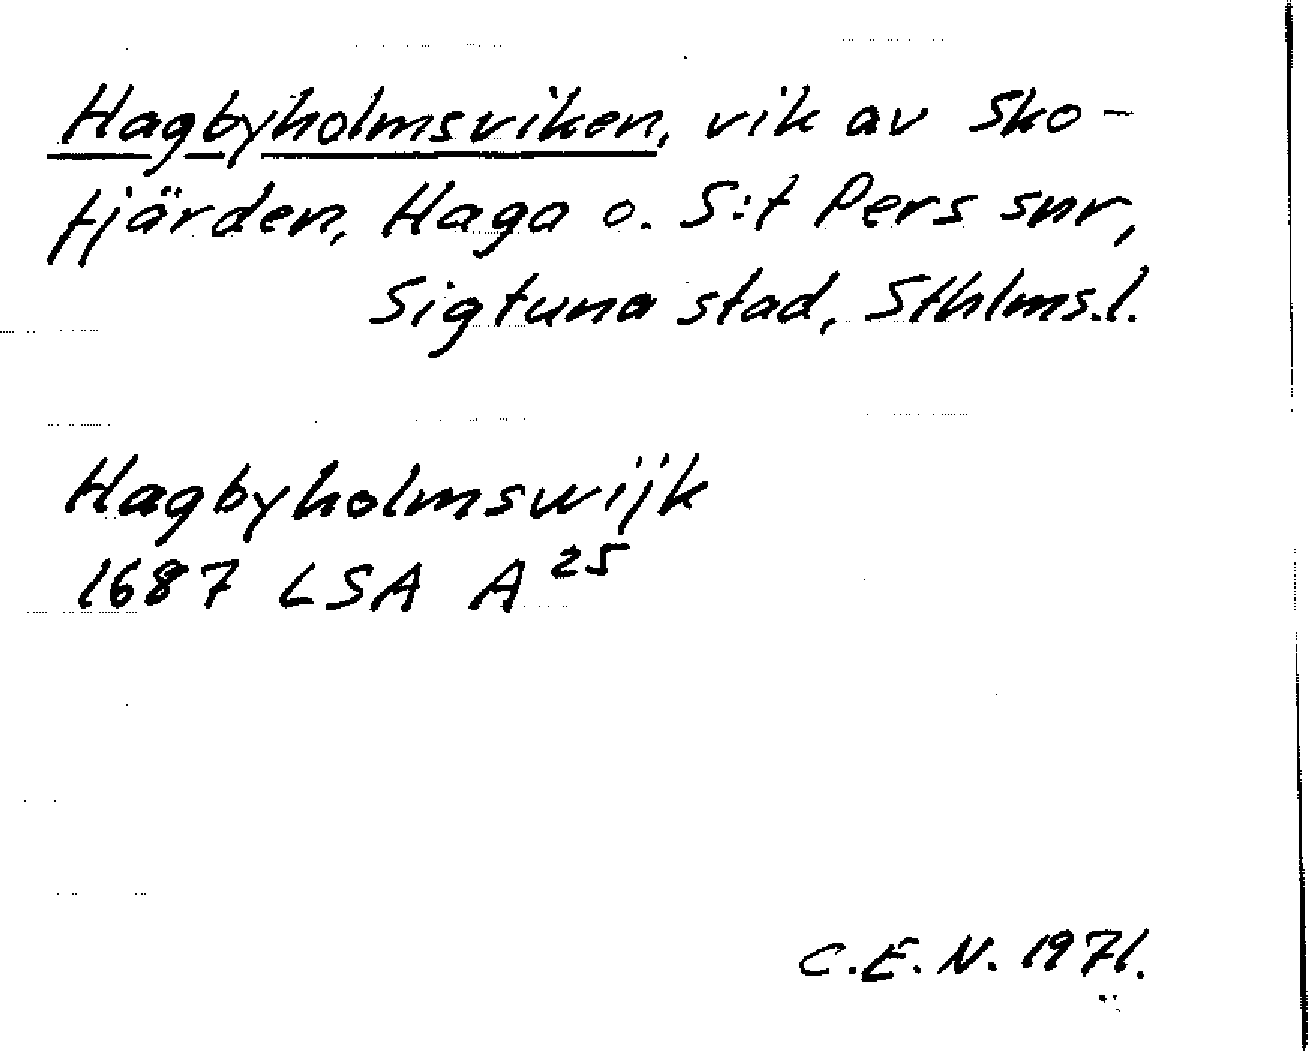 Hagbyholmsviken, vik av Sko-
fjärden, Haga o. S:t Pers snr,
Sigtuna stad, Sthlms.l.
Hagbyholmswijk
1687 LSA A 25
C.E.N. 1971.